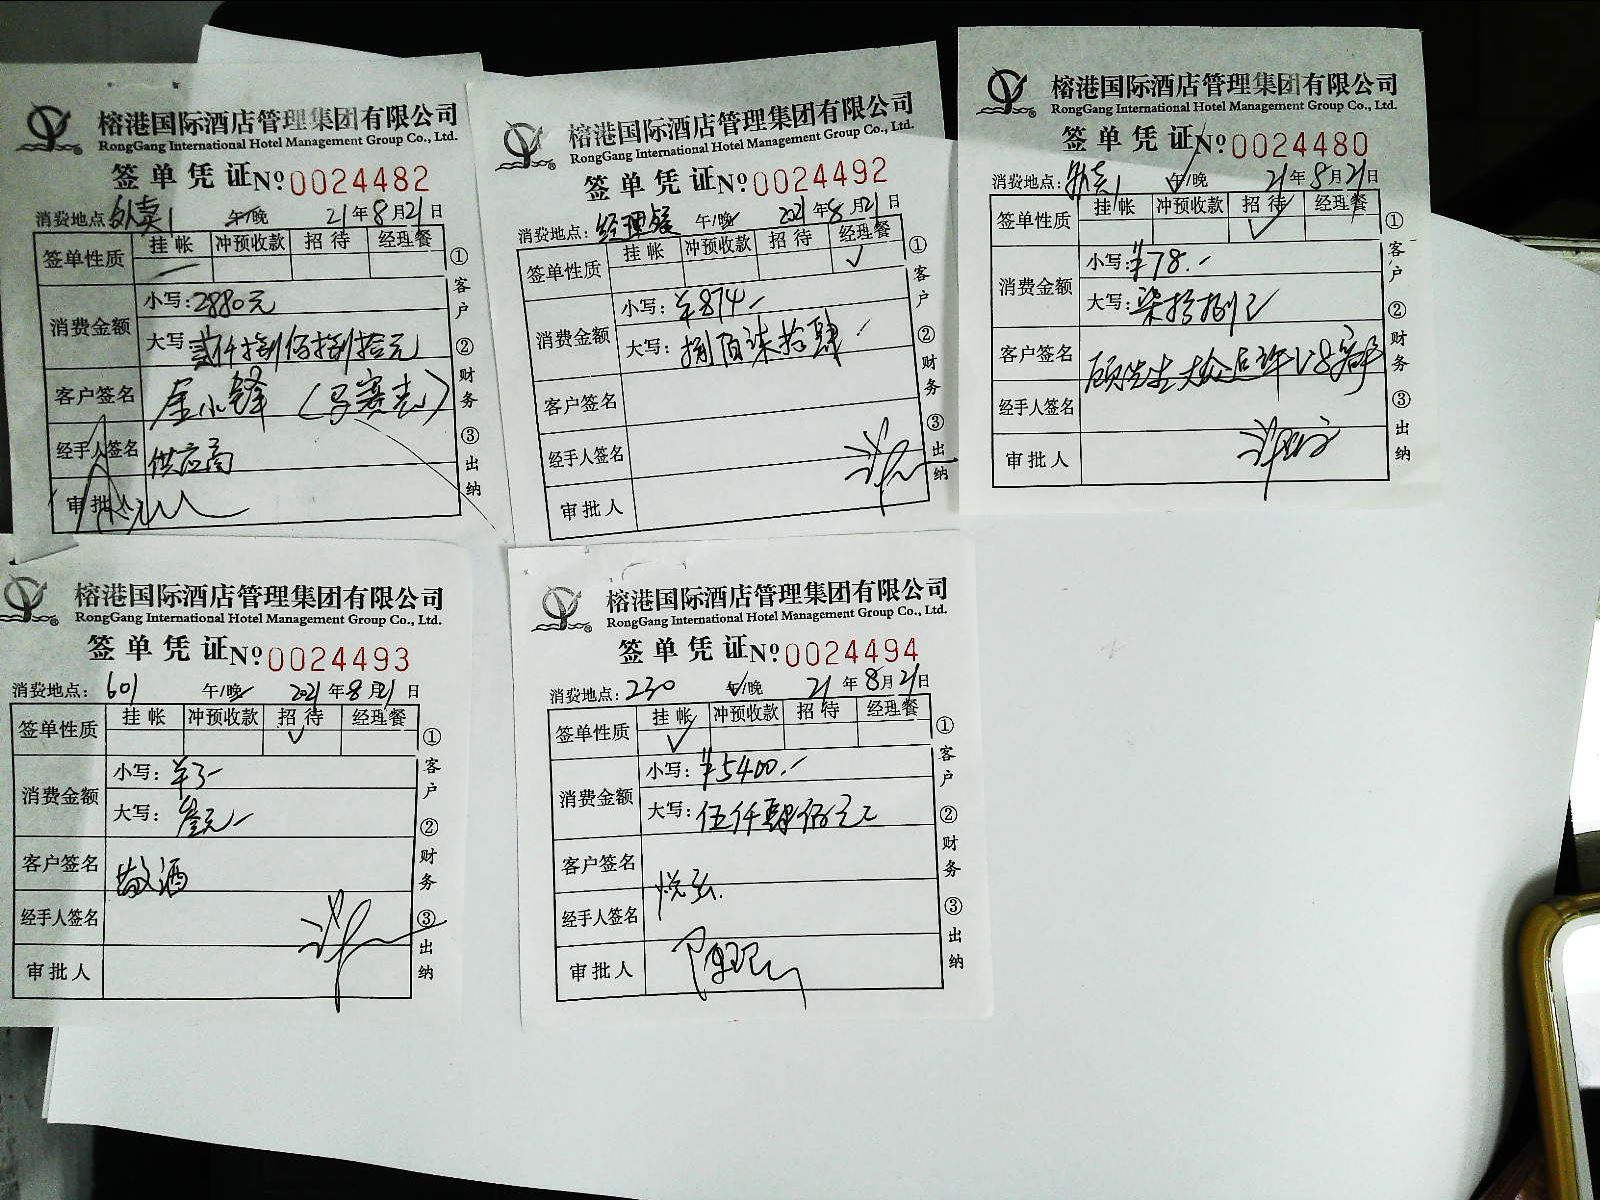 榕港国际酒店管理集团有限公司
RongGang International Hotel Management Group Co., Ltd.
签单凭证 Nº 0024482
消费地点: 外卖1 午/晚 21年8月21日
签单性质 挂帐 冲预收款 招待 经理餐
消费金额 小写: 2880元
大写: 贰仟捌佰捌拾元
客户签名
经手人签名 供应商
审批人
① 客户 ② 财务 ③ 出纳
榕港国际酒店管理集团有限公司
RongGang International Hotel Management Group Co., Ltd.
签单凭证 Nº 0024492
消费地点: 经理餐 午/晚 2021年8月21日
签单性质 挂帐 冲预收款 招待 经理餐
消费金额 小写: ¥874-
大写: 捌佰柒拾肆
客户签名
经手人签名
审批人
① 客户 ② 财务 ③ 出纳
榕港国际酒店管理集团有限公司
RongGang International Hotel Management Group Co., Ltd.
签单凭证 Nº 0024480
消费地点: 外卖1 午/晚 21年8月21日
签单性质 挂帐 冲预收款 招待 经理餐
消费金额 小写: ¥78.-
大写: 柒拾捌元
客户签名 顾先生
经手人签名
审批人
① 客户 ② 财务 ③ 出纳
榕港国际酒店管理集团有限公司
RongGang International Hotel Management Group Co., Ltd.
签单凭证 Nº 0024493
消费地点: 601 午/晚 2021年8月21日
签单性质 挂帐 冲预收款 招待 经理餐
消费金额 小写: ¥3-
大写: 叁元-
客户签名 敬酒
经手人签名
审批人
① 客户 ② 财务 ③ 出纳
榕港国际酒店管理集团有限公司
RongGang International Hotel Management Group Co., Ltd.
签单凭证 Nº 0024494
消费地点: 230 午/晚 21年8月21日
签单性质 挂帐 冲预收款 招待 经理餐
消费金额 小写: ¥5400.-
大写: 伍仟肆佰元
客户签名 悦弘
经手人签名
审批人
① 客户 ② 财务 ③ 出纳